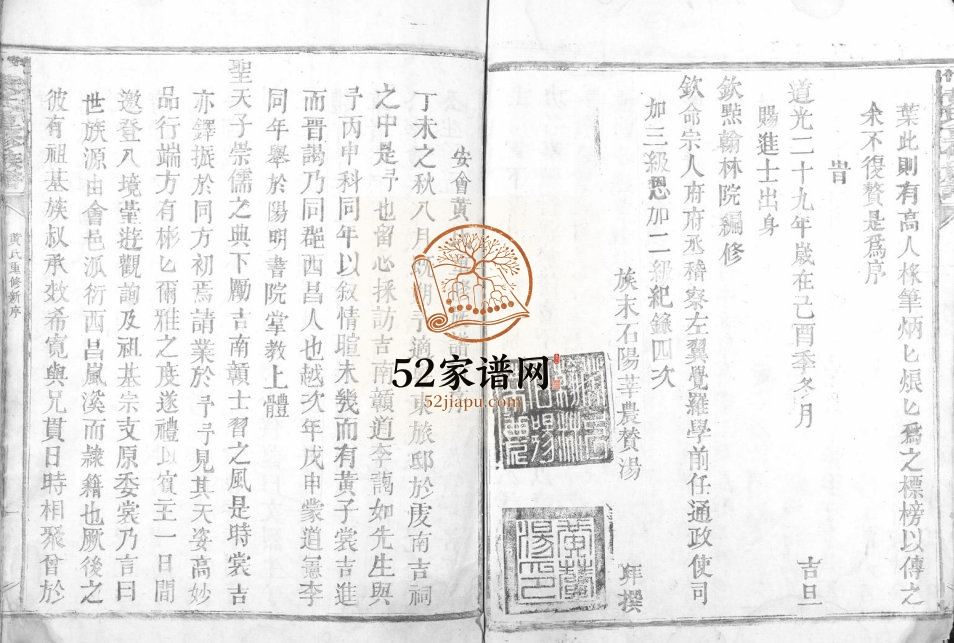 葉此則有高人椽筆炳匕烺匕爲之標榜以傳之
余不復贅是爲序
旹
道光二十九年歲在己酉季冬月 吉旦
賜進士出身
欽點翰林院編修
欽命宗人府府丞稽察左翼覺羅學前任通政使司
加三級恩加二級紀錄四次
族末石陽莘農贊湯 拜撰
安會黃
丁未之秋八月 東旅邸於虔南吉祠
之中是予也留心採訪吉南贛道李謁如先生與
予丙申科同年以叙情暄未幾而有黃子裳吉進
而晉謁乃同郡西昌人也越次年戊申蒙道憲李
同年舉於陽明書院堂教上體
聖天子崇儒之典下勵吉南贛士習之風是時裳吉
亦鐸振於同方初焉請業於予予見其天姿高妙
品行端方有彬匕爾雅之度遂禮以賓主一日間
邀登八境臺遊觀詢及祖基宗支原委裳乃言曰
世族源由會邑派衍西昌嵐溪而隸籍也厥後之
彼有祖基族叔承效希寬與兄貫日時相聚會於
黃氏重修新序
52家谱网
52jiapu.com